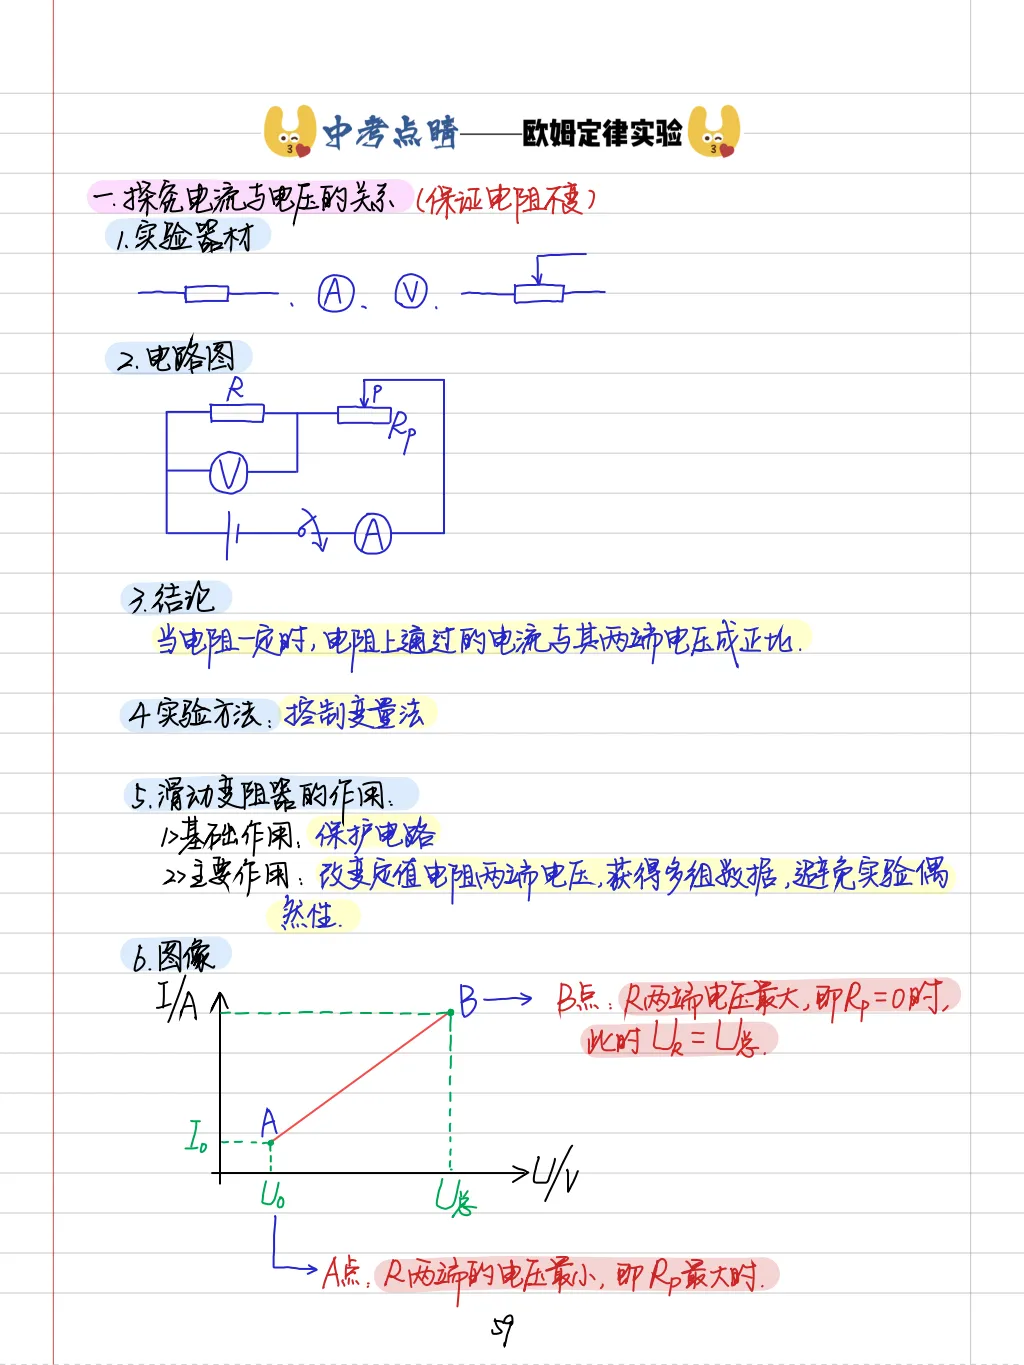 中考点晴——欧姆定律实验
一.探究电流与电压的关系(保证电阻不变)
1.实验器材
、A、V、
2.电路图
R
P
Rp
V
A
3.结论
当电阻一定时,电阻上通过的电流与其两端电压成正比.
4 实验方法:控制变量法
5.滑动变阻器的作用:
1>基础作用:保护电路
2>主要作用:改变定值电阻两端电压,获得多组数据,避免实验偶
然性.
6.图像
I/A
B
B点:R两端电压最大,即Rp=0时,
此时UR=U总.
A
I0
U/V
U0
U总
A点:R两端的电压最小,即Rp最大时.
59